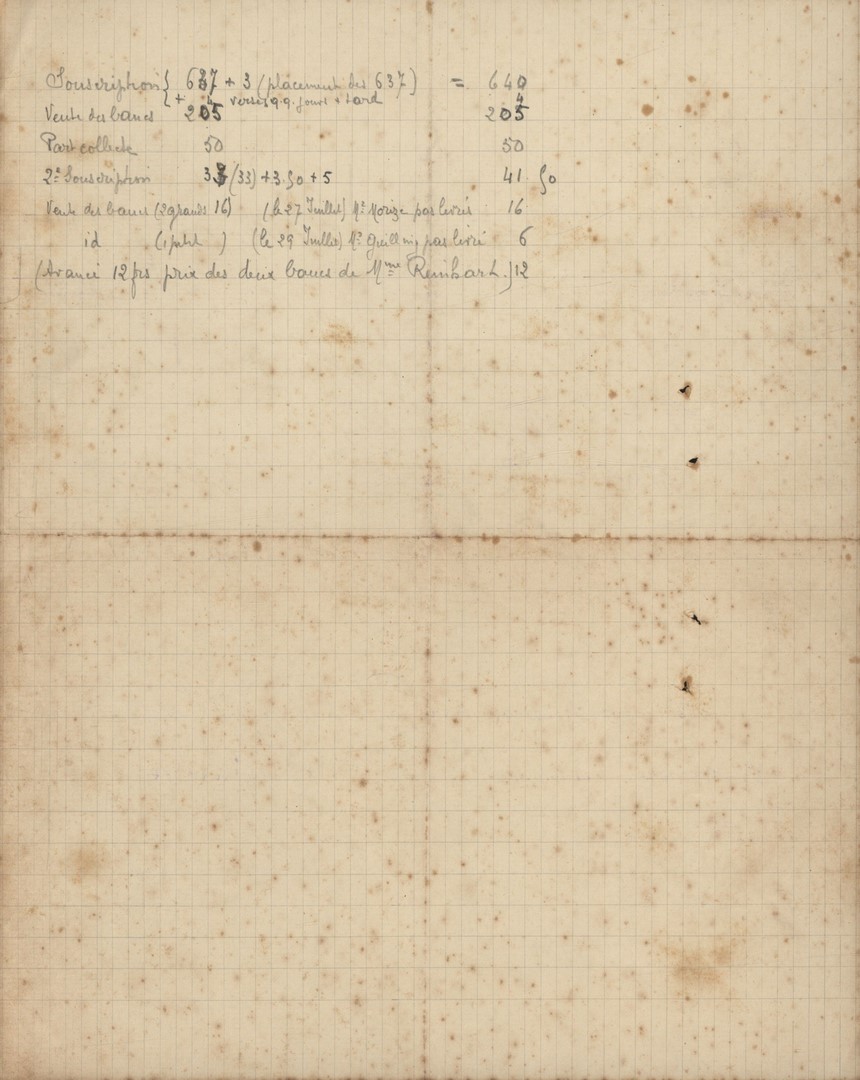 Souscription { 637 + 3 (placement des 637) = 640
+ 4 versés qq. jours + tard 4
Vente des bancs 205 205
Part collecte 50 50
2e Souscription 33 (33) + 3.50 + 5 41.50
Vente des bancs (2 grands 16) (le 27 Juillet) Mr Morize pas livrés 16
id (1 petit ) (le 29 Juillet) Mr pas livré 6
(Avancé 12 frs prix des deux bancs de Mme Reinhart.) 12